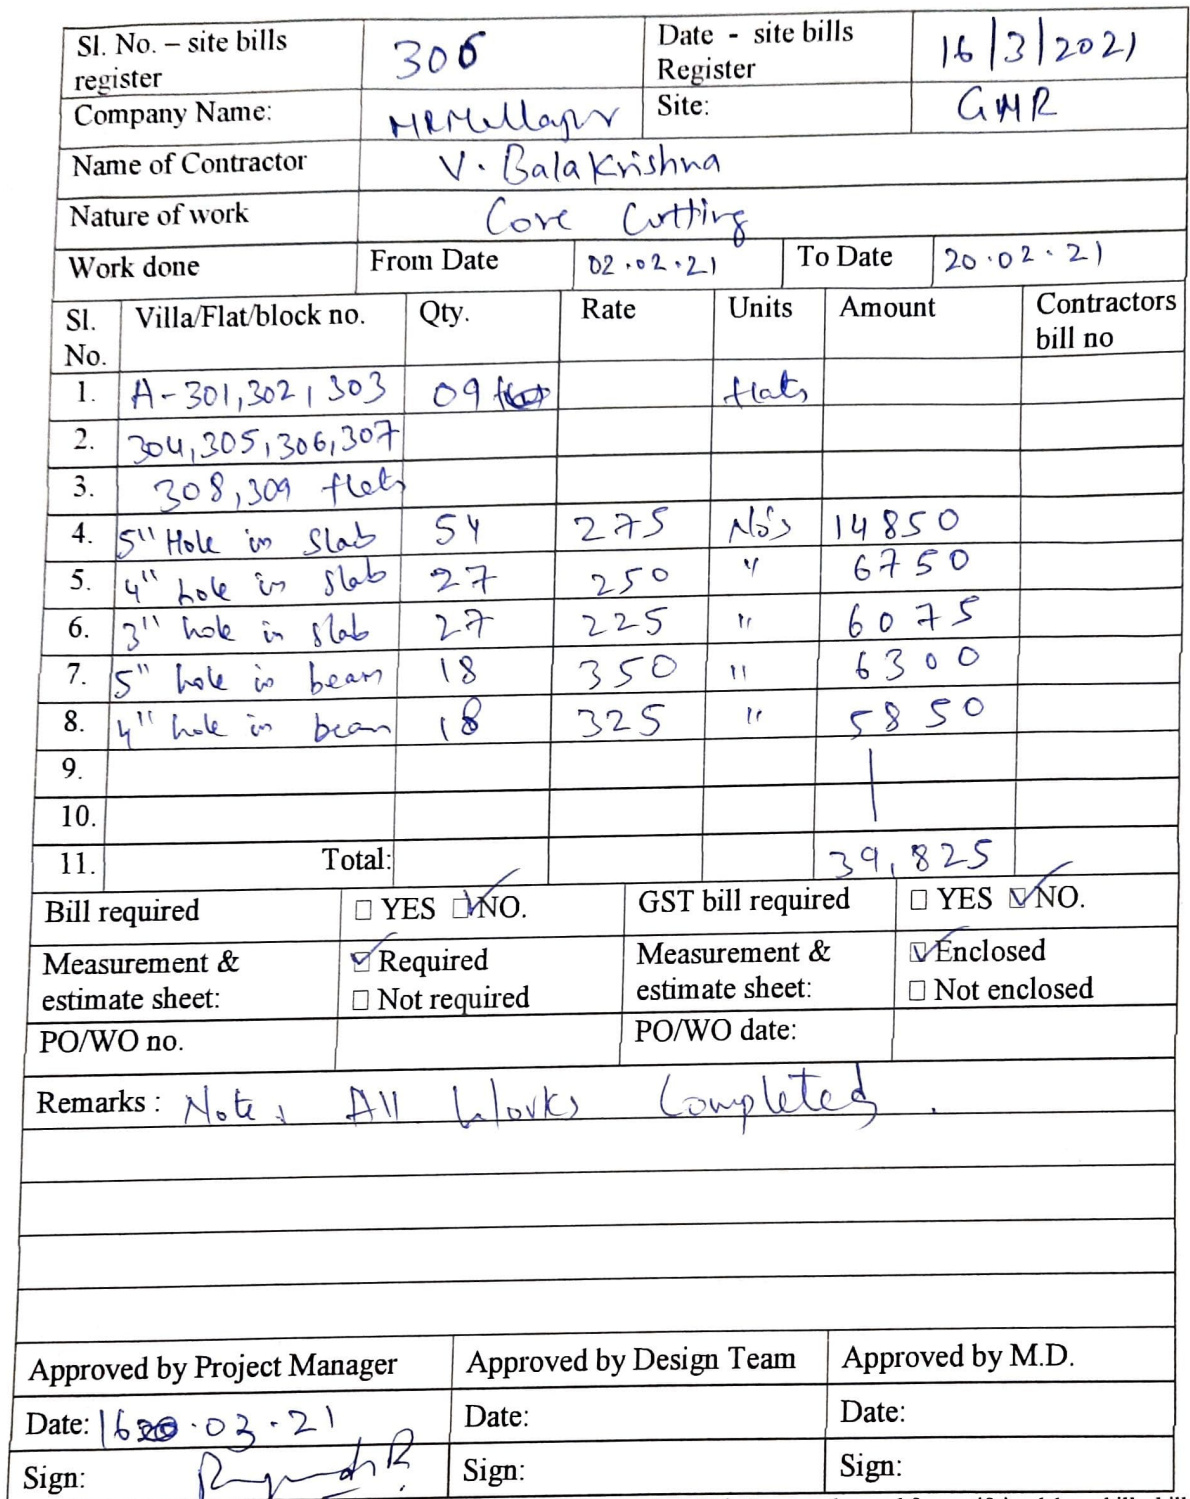 Sl. No. – site bills register 306 Date - site bills Register 16/3/2021
Company Name: Site: GMR
Name of Contractor V. Bala Krishna
Nature of work Core Cutting
Work done From Date 02.02.21 To Date 20.02.21
Sl. No. Villa/Flat/block no. Qty. Rate Units Amount Contractors bill no
1. A-301,302,303 09 flats
2. 304,305,306,307
3. 308,309 flats
4. 5" Hole in Slab 54 275 No's 14850
5. 4" hole in slab 27 250 " 6750
6. 3" hole in slab 27 225 " 6075
7. 5" hole in beam 18 350 " 6300
8. 4" hole in beam 18 325 " 5850
9.
10.
11. Total: 39,825
Bill required ☐ YES ☑ NO. GST bill required ☐ YES ☑ NO.
Measurement & estimate sheet: ☑ Required ☐ Not required Measurement & estimate sheet: ☑ Enclosed ☐ Not enclosed
PO/WO no. PO/WO date:
Remarks : Note, All Works Completed.
Approved by Project Manager Approved by Design Team Approved by M.D.
Date: 16.03.21 Date: Date:
Sign: Sign: Sign: